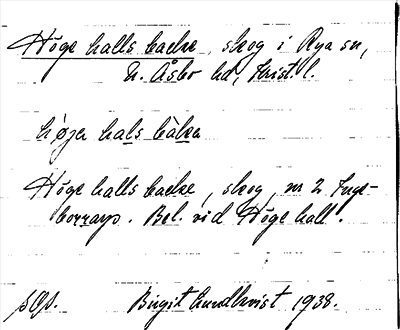 Höge halls backe, skog i Rya sn,
N. Åsbo hd, Krist. l.
høja hals bàka
Höge halls backe, skog, nr 2
Bel. vid Höge hall.
Birgit Lundkvist 1938.